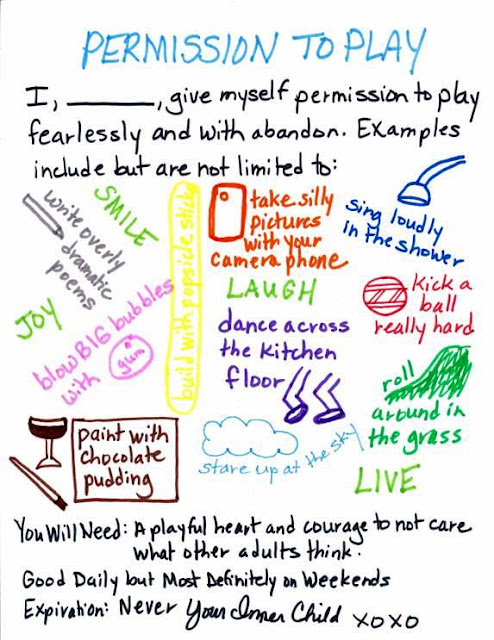 PERMISSION TO PLAY
I, ________, give myself permission to play
fearlessly and with abandon. Examples
include but are not limited to:
write overly
dramatic
poems
SMILE
build with popsicle sticks
take silly
pictures
with your
camera phone
sing loudly
in the shower
JOY
blow BIG bubbles
with gum
LAUGH
kick a
ball
really hard
dance across
the kitchen
floor
roll
around in
the grass
paint with
chocolate
pudding
stare up at the sky
LIVE
You Will Need: A playful heart and courage to not care
what other adults think.
Good Daily but Most Definitely on Weekends
Expiration: Never Your Inner Child XOXO